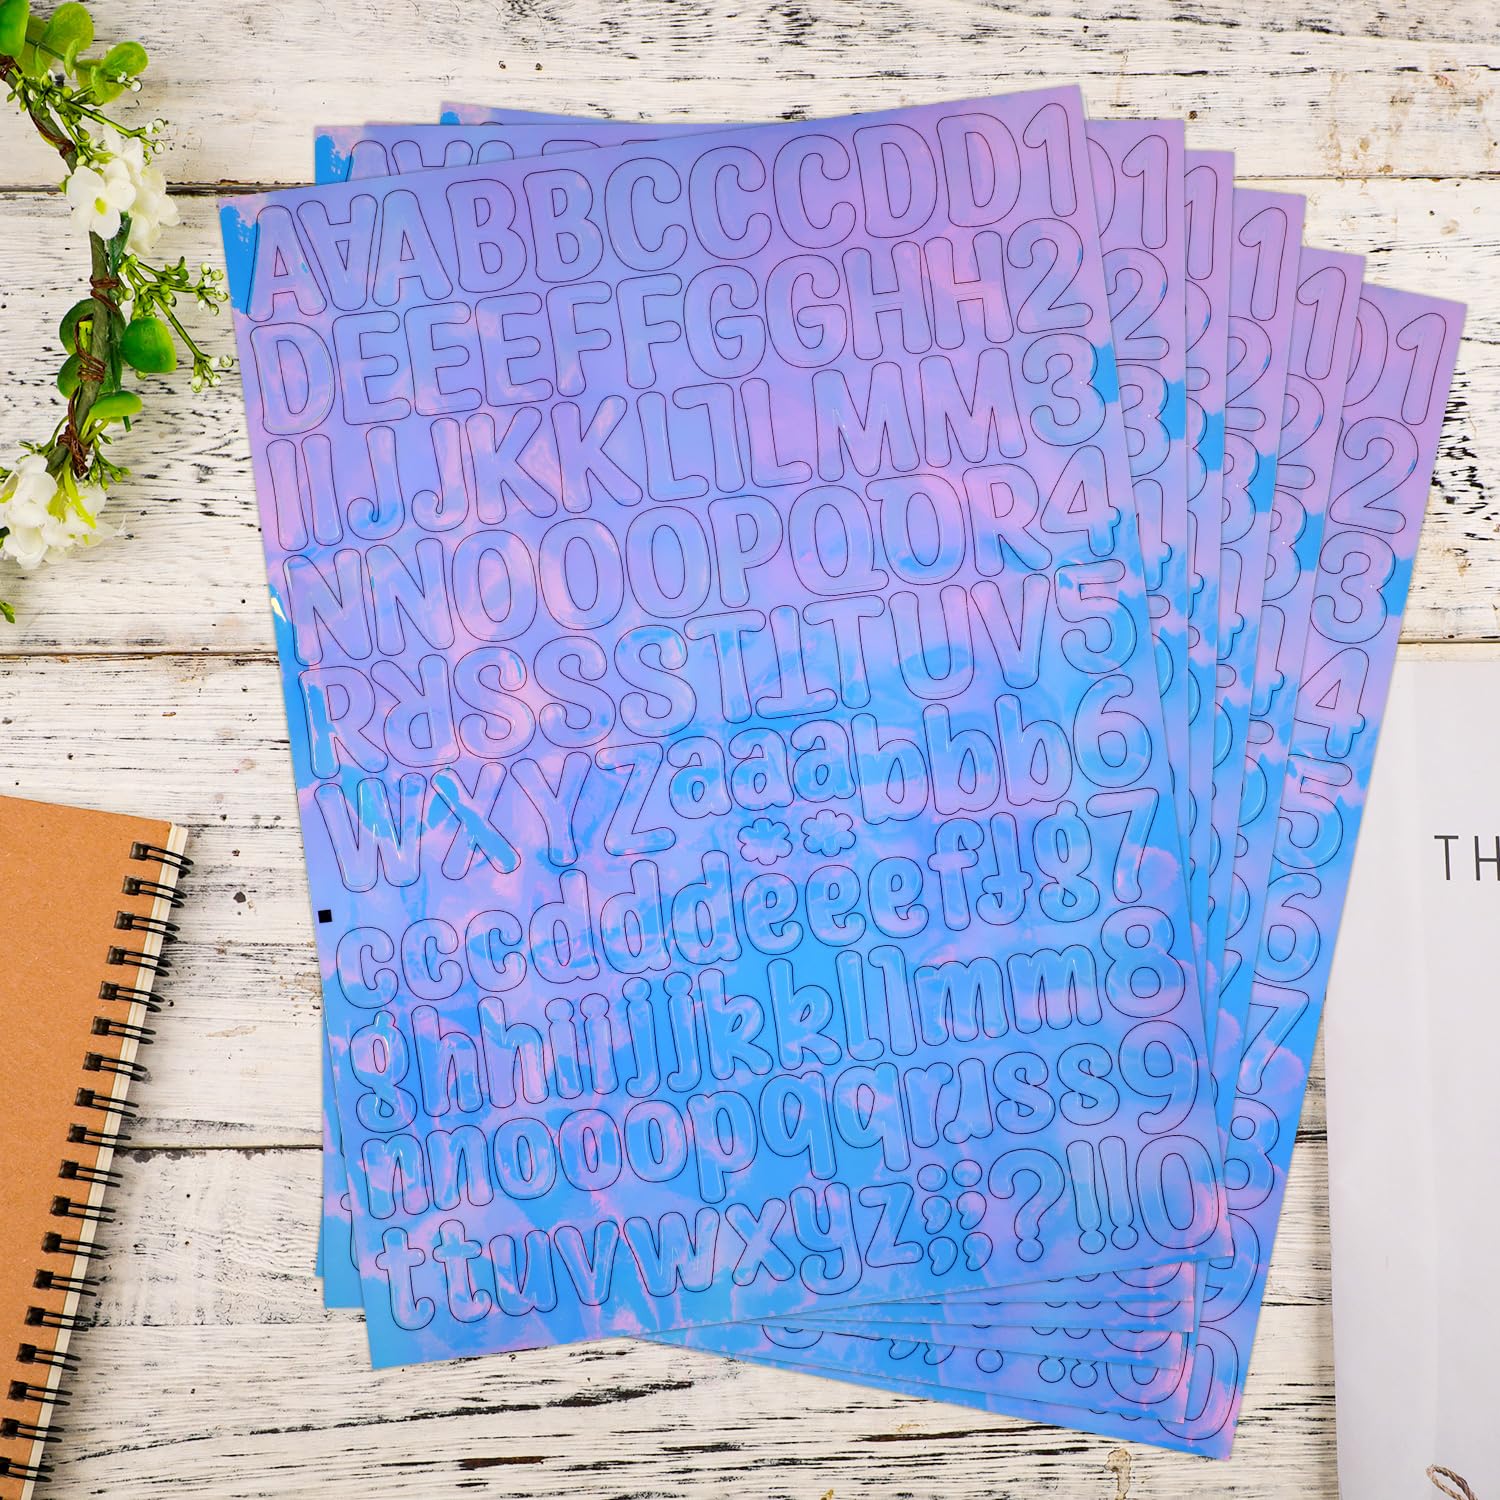 AAABBCCCDD1
DEEEFFGGHH2
IIJJKKLLLMM3
NNOOOPQQR4
RRSSSTTTUV5
WXYZaaabbb6
cccdddeeeffg7
ghhiijjkkllmm8
nnooopqqrrsss9
ttuvwxyz;;?!!0
TH